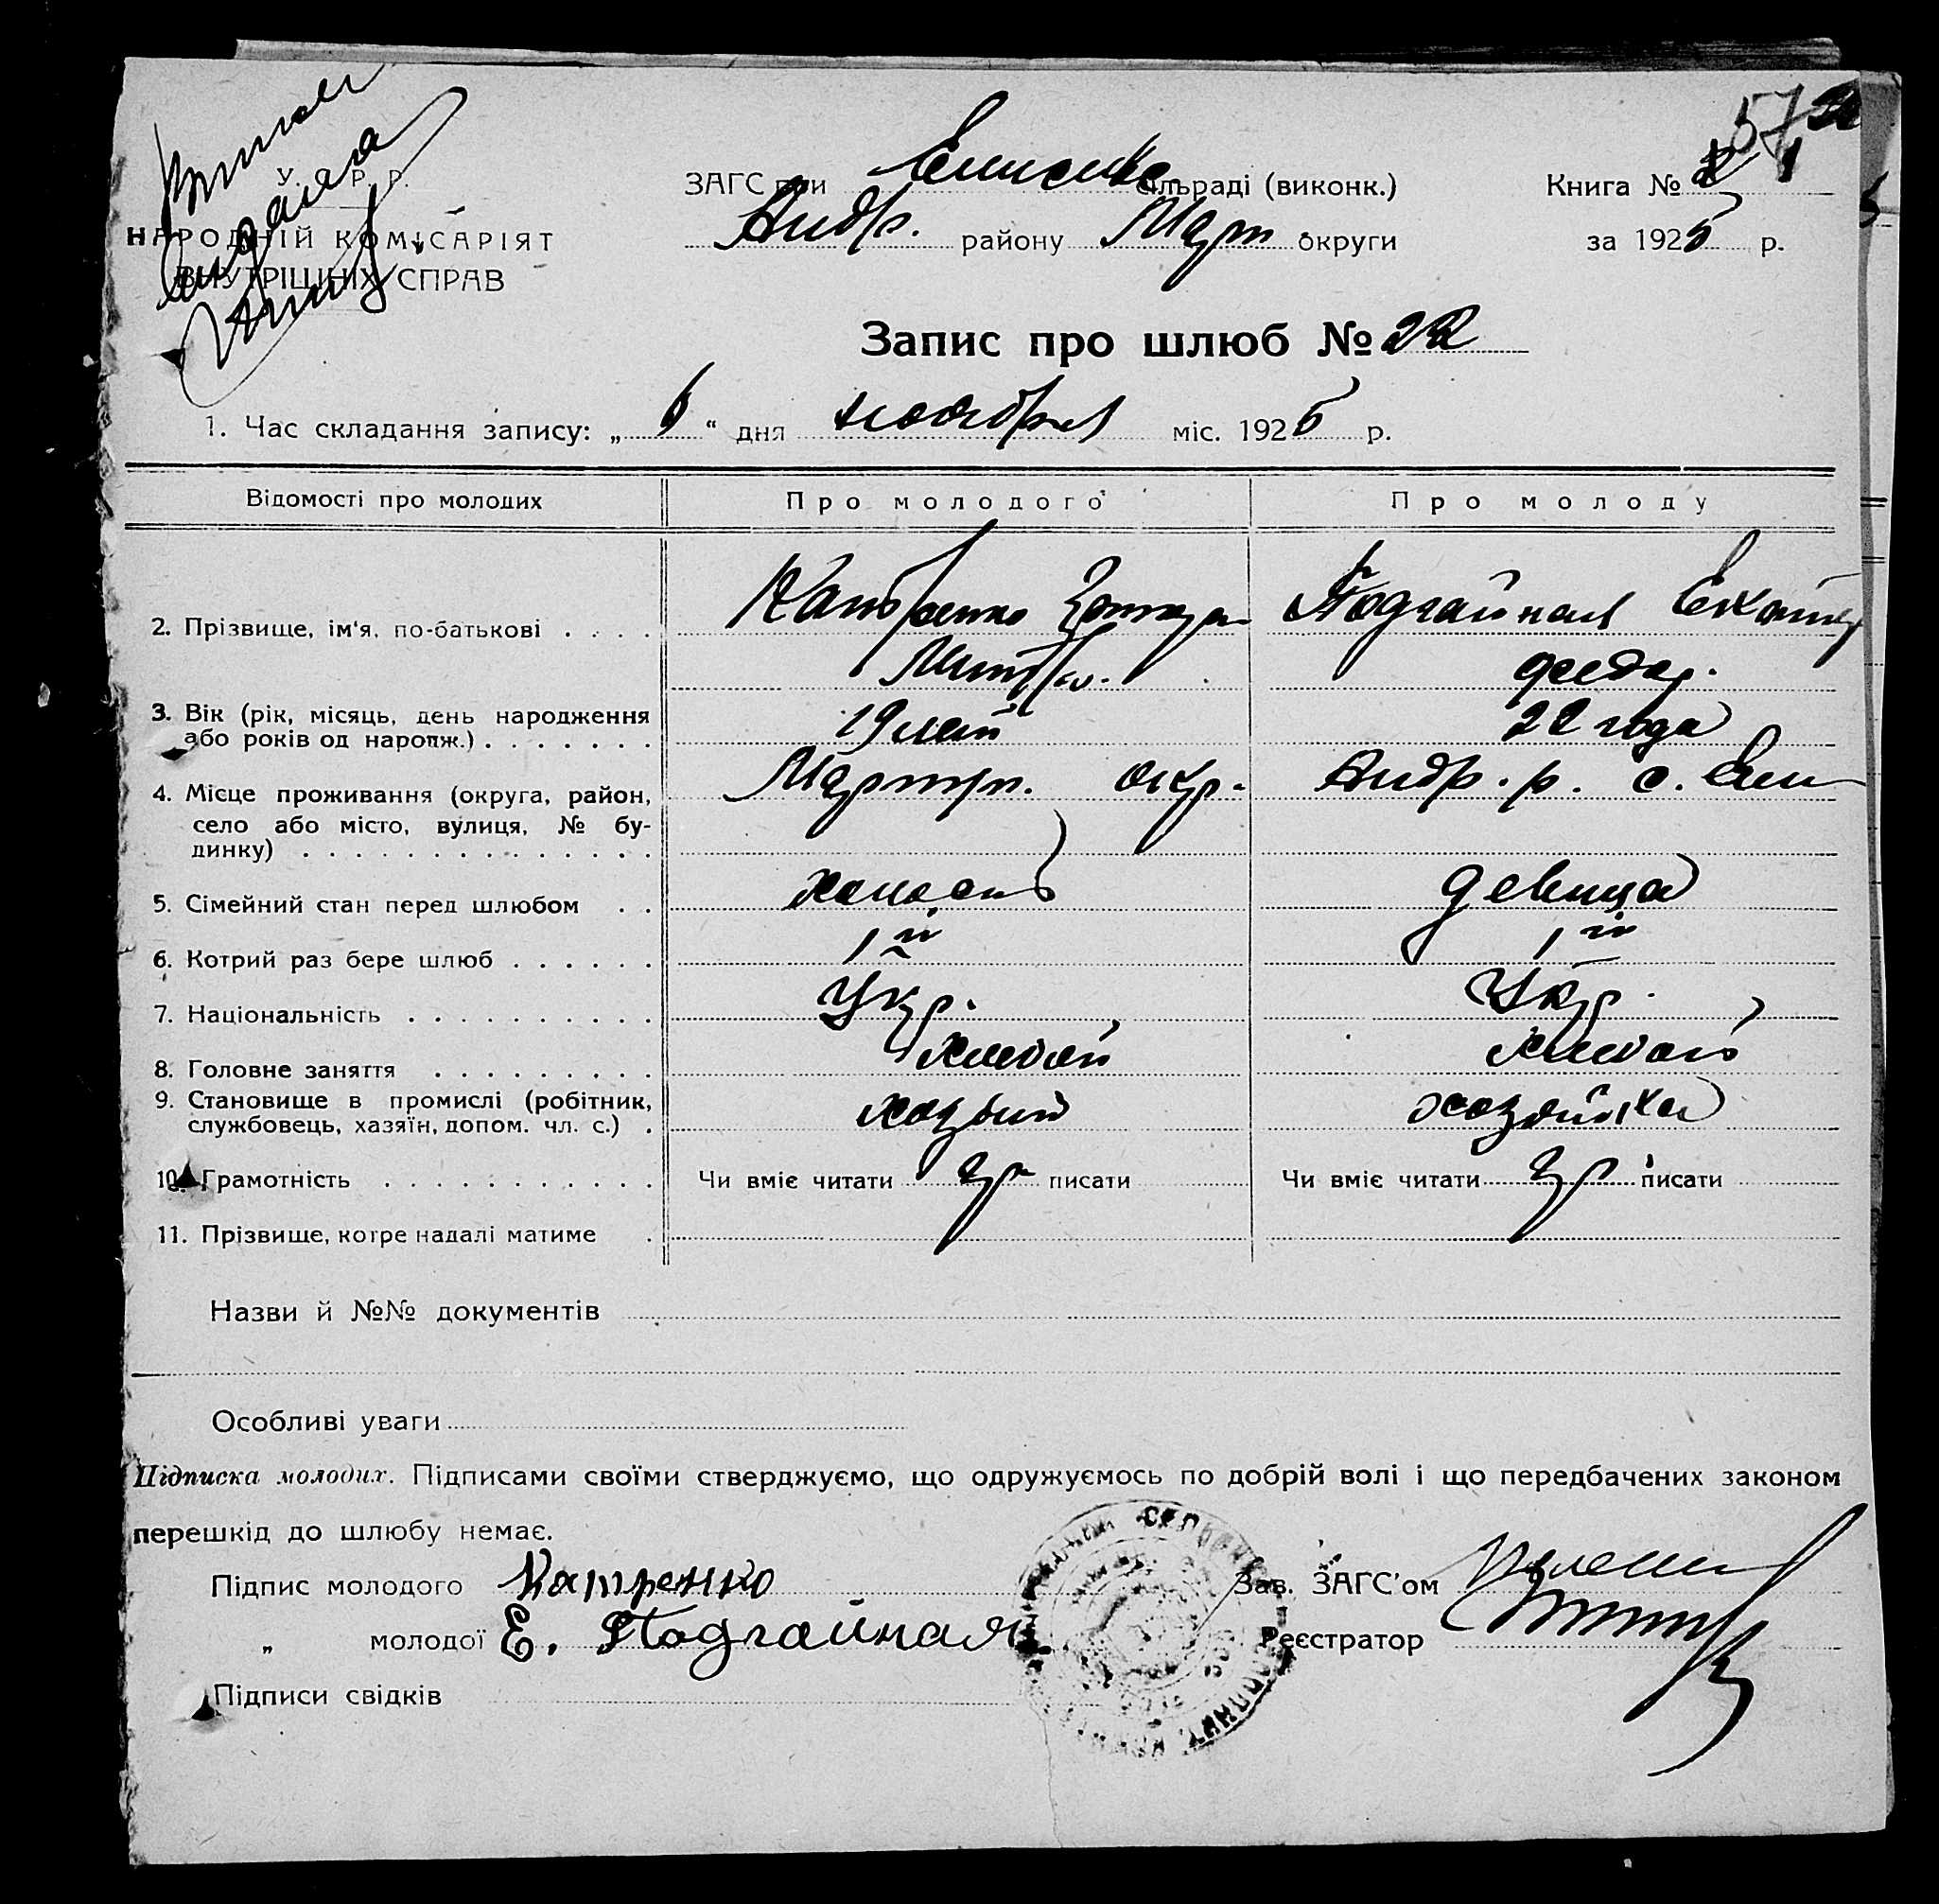 57
У. С. Р. Р.
НАРОДНІЙ КОМІСАРІЯТ
ВНУТРІШНІХ СПРАВ
ЗАГС при Елисеив сільраді (виконк.)
Андр. району Март округи
Книга № 1
за 1925 р.
Запис про шлюб № 22
1. Час складання запису: „ 6 “ дня ноября міс. 1925 р.
Відомості про молодих
Про молодого
Про молоду
2. Прізвище, ім‘я, по-батькові . . . .
Катренко
Подгайная Екатер
Федор.
3. Вік (рік, місяць, день народження
або років од народж.) . . . . . . .
19 лет
22 года
4. Місце проживання (округа, район,
село або місто, вулиця, № бу-
динку) . . . . . . . . . . . . . .
окр.
Андр. р. с. Ели
5. Сімейний стан перед шлюбом . .
холост
девица
6. Котрий раз бере шлюб . . . . . .
1й
1й
7. Національність . . . . . . . . . .
Укр.
Укр.
8. Головне заняття . . . . . . . . .
хлебоп
хлебоп
9. Становище в промислі (робітник,
службовець, хазяїн, допом. чл. с.) .
хозяин
хозяйка
10. Грамотність . . . . . . . . . . .
Чи вміє читати гр писати
Чи вміє читати гр писати
11. Прізвище, котре надалі матиме .
Назви й №№ документів
Особливі уваги
Підписка молодих. Підписами своїми стверджуємо, що одружуємось по добрій волі і що передбачених законом
перешкід до шлюбу немає.
Підпис молодого Катренко
„ молодої Е. Подгайная
Підписи свідків
Зав. ЗАГС’ом
Реєстратор